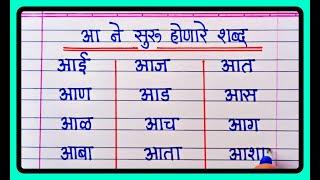 आ ने सुरू होणारे शब्द
आई आज आत
आण आड आस
आळ आच आग
आबा आता आशा